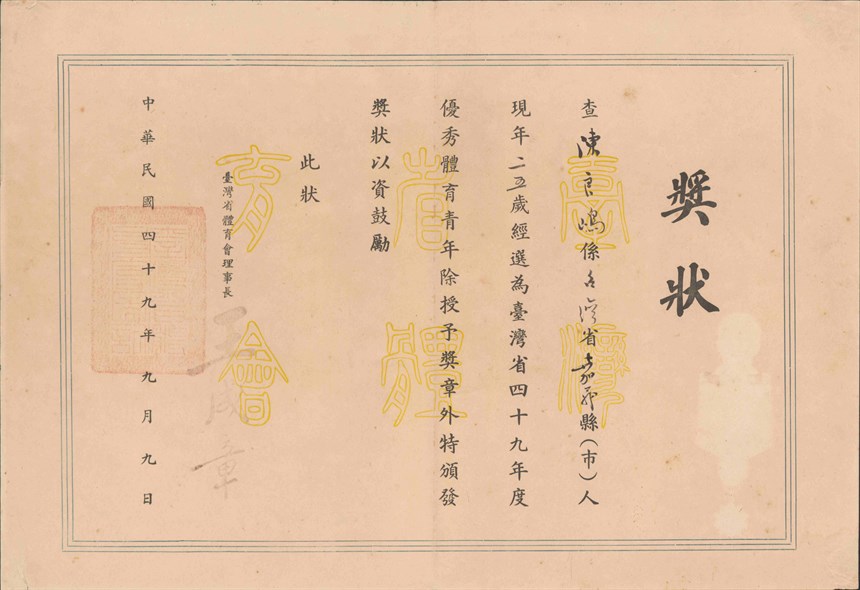 獎狀
查陳良鳴係台灣省嘉義縣(市)人
現年二五歲經選為臺灣省四十九年度
優秀體育青年除授予獎章外特頒發
獎狀以資鼓勵
此狀
臺灣省體育會理事長
王成章
中華民國四十九年九月九日
臺灣
省體
育會